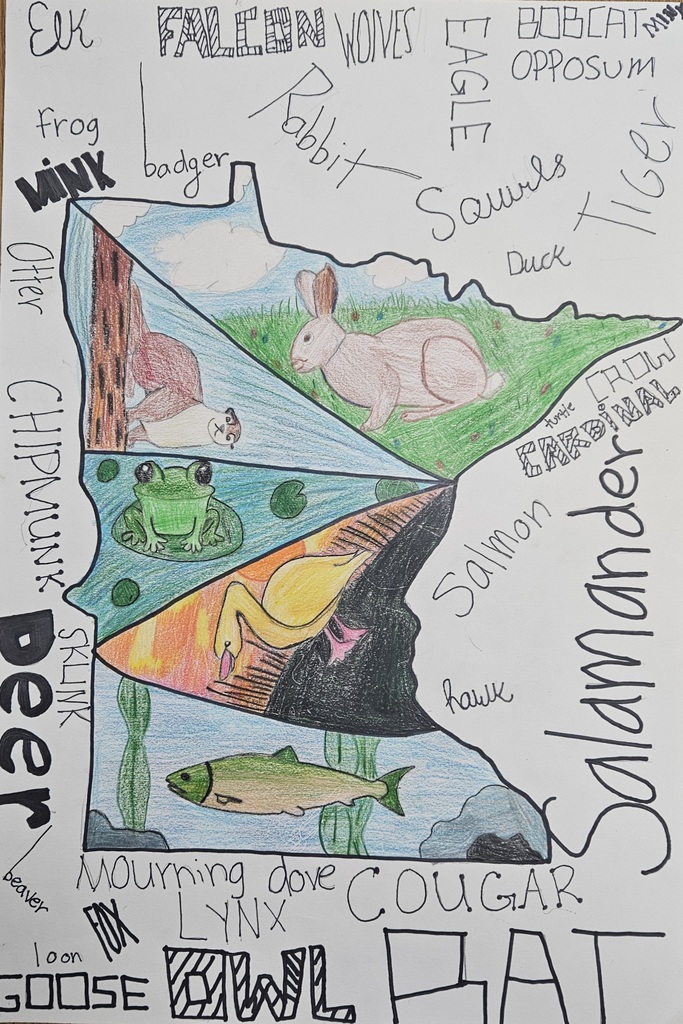 Elk
FALCON
WOlVES
EAGLE
BOBCAT
OPPOSUM
frog
MiNK
badger
Rabbit
Squirrels
TIGer
Duck
Otter
CHIPMUNK
CROW
turtle
CARDiNAL
Salmon
Salamander
SKUNK
Deer
hawk
beaver
Mourning dove
COUGAR
FOX
LYNX
loon
GOOSE
OWL
BAT